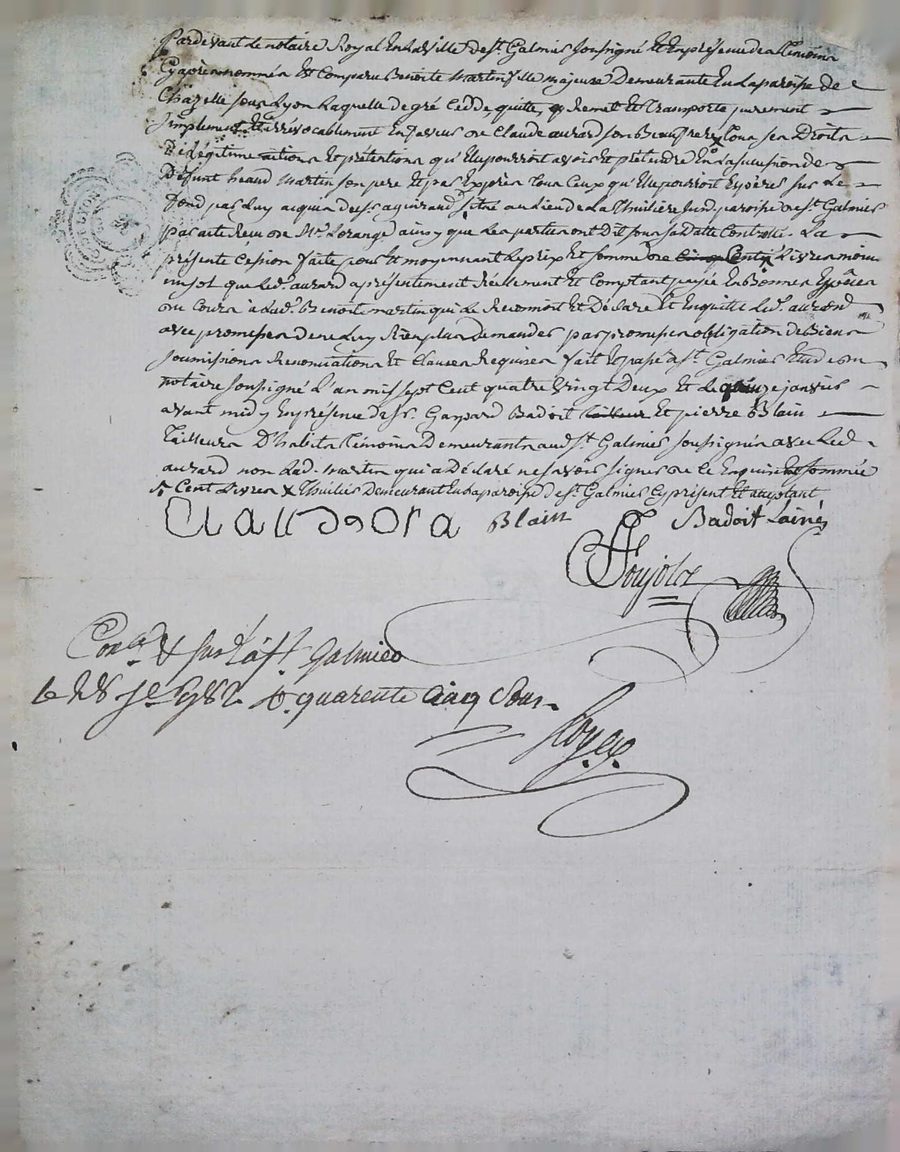 Pardevant Le notaire Royal En La Ville de st. Galmier soussigné Et En présence des Témoins
Cyaprès nommés Est Comparu Benoite Martin fille majeure Demeurante En La paroisse de
Chazelle sous Lyon Laquelle de gré Cedde, quitte, Remet Et Transporte purement
simplement Et irrévocablement En faveur de Claude aurard son Beaufrere Tous ses Droits
De Légitime actions Et prétentions qu'Elle pourroit avoir Et prétendre En La succession de
Défunt heaud Martin son pere Et par Exprès Tous Ceux qu'Elle pourroit Espérer sur Le
fond par Luy acquis de sr. aguiraud situé au Lieu de La Thuilière susd. paroisse de st. Galmier
par acte Reçu Me. Lorange ainsy que Les parties ont Dit sous sa datte Controllé. La
présente Cession faite pour Et moyennant Le prix Et somme de Cinq Cents Livres
que Led. aurard a présentement Réellement Et Comptant payée En Bonnes Espèces
de Cours à Lad. Benoite Martin qui La Reconnoit Et Déclare Et En quitte Led. aurard
avec promesse de ne Luy Rien plus Demander par promesses obligation de Biens
soumissions Renonciations Et Clauses Requises fait Et passé à st. Galmier Etude du
notaire soussigné L'an mil sept Cent quatre Vingt Deux Et Le quinze janvier
avant midy En présence de sr. Gaspard Badoit Et pierre Blain
Tailleur D'habits Témoins Demeurants aud. st. Galmier soussignés avec Led.
aurard non Lad. Martin qui a Déclaré ne savoir signer de Ce Enquise Et sommée
Cent Livres & Thuilier Demeurant En La paroisse de st. Galmier Cy présent Et acceptant
Claudeora Blain Badoit Lainé
Poujolx
Conlé. & sur à st. Galmier
le 28 jer. 1782 R. quarente Cinq Sous